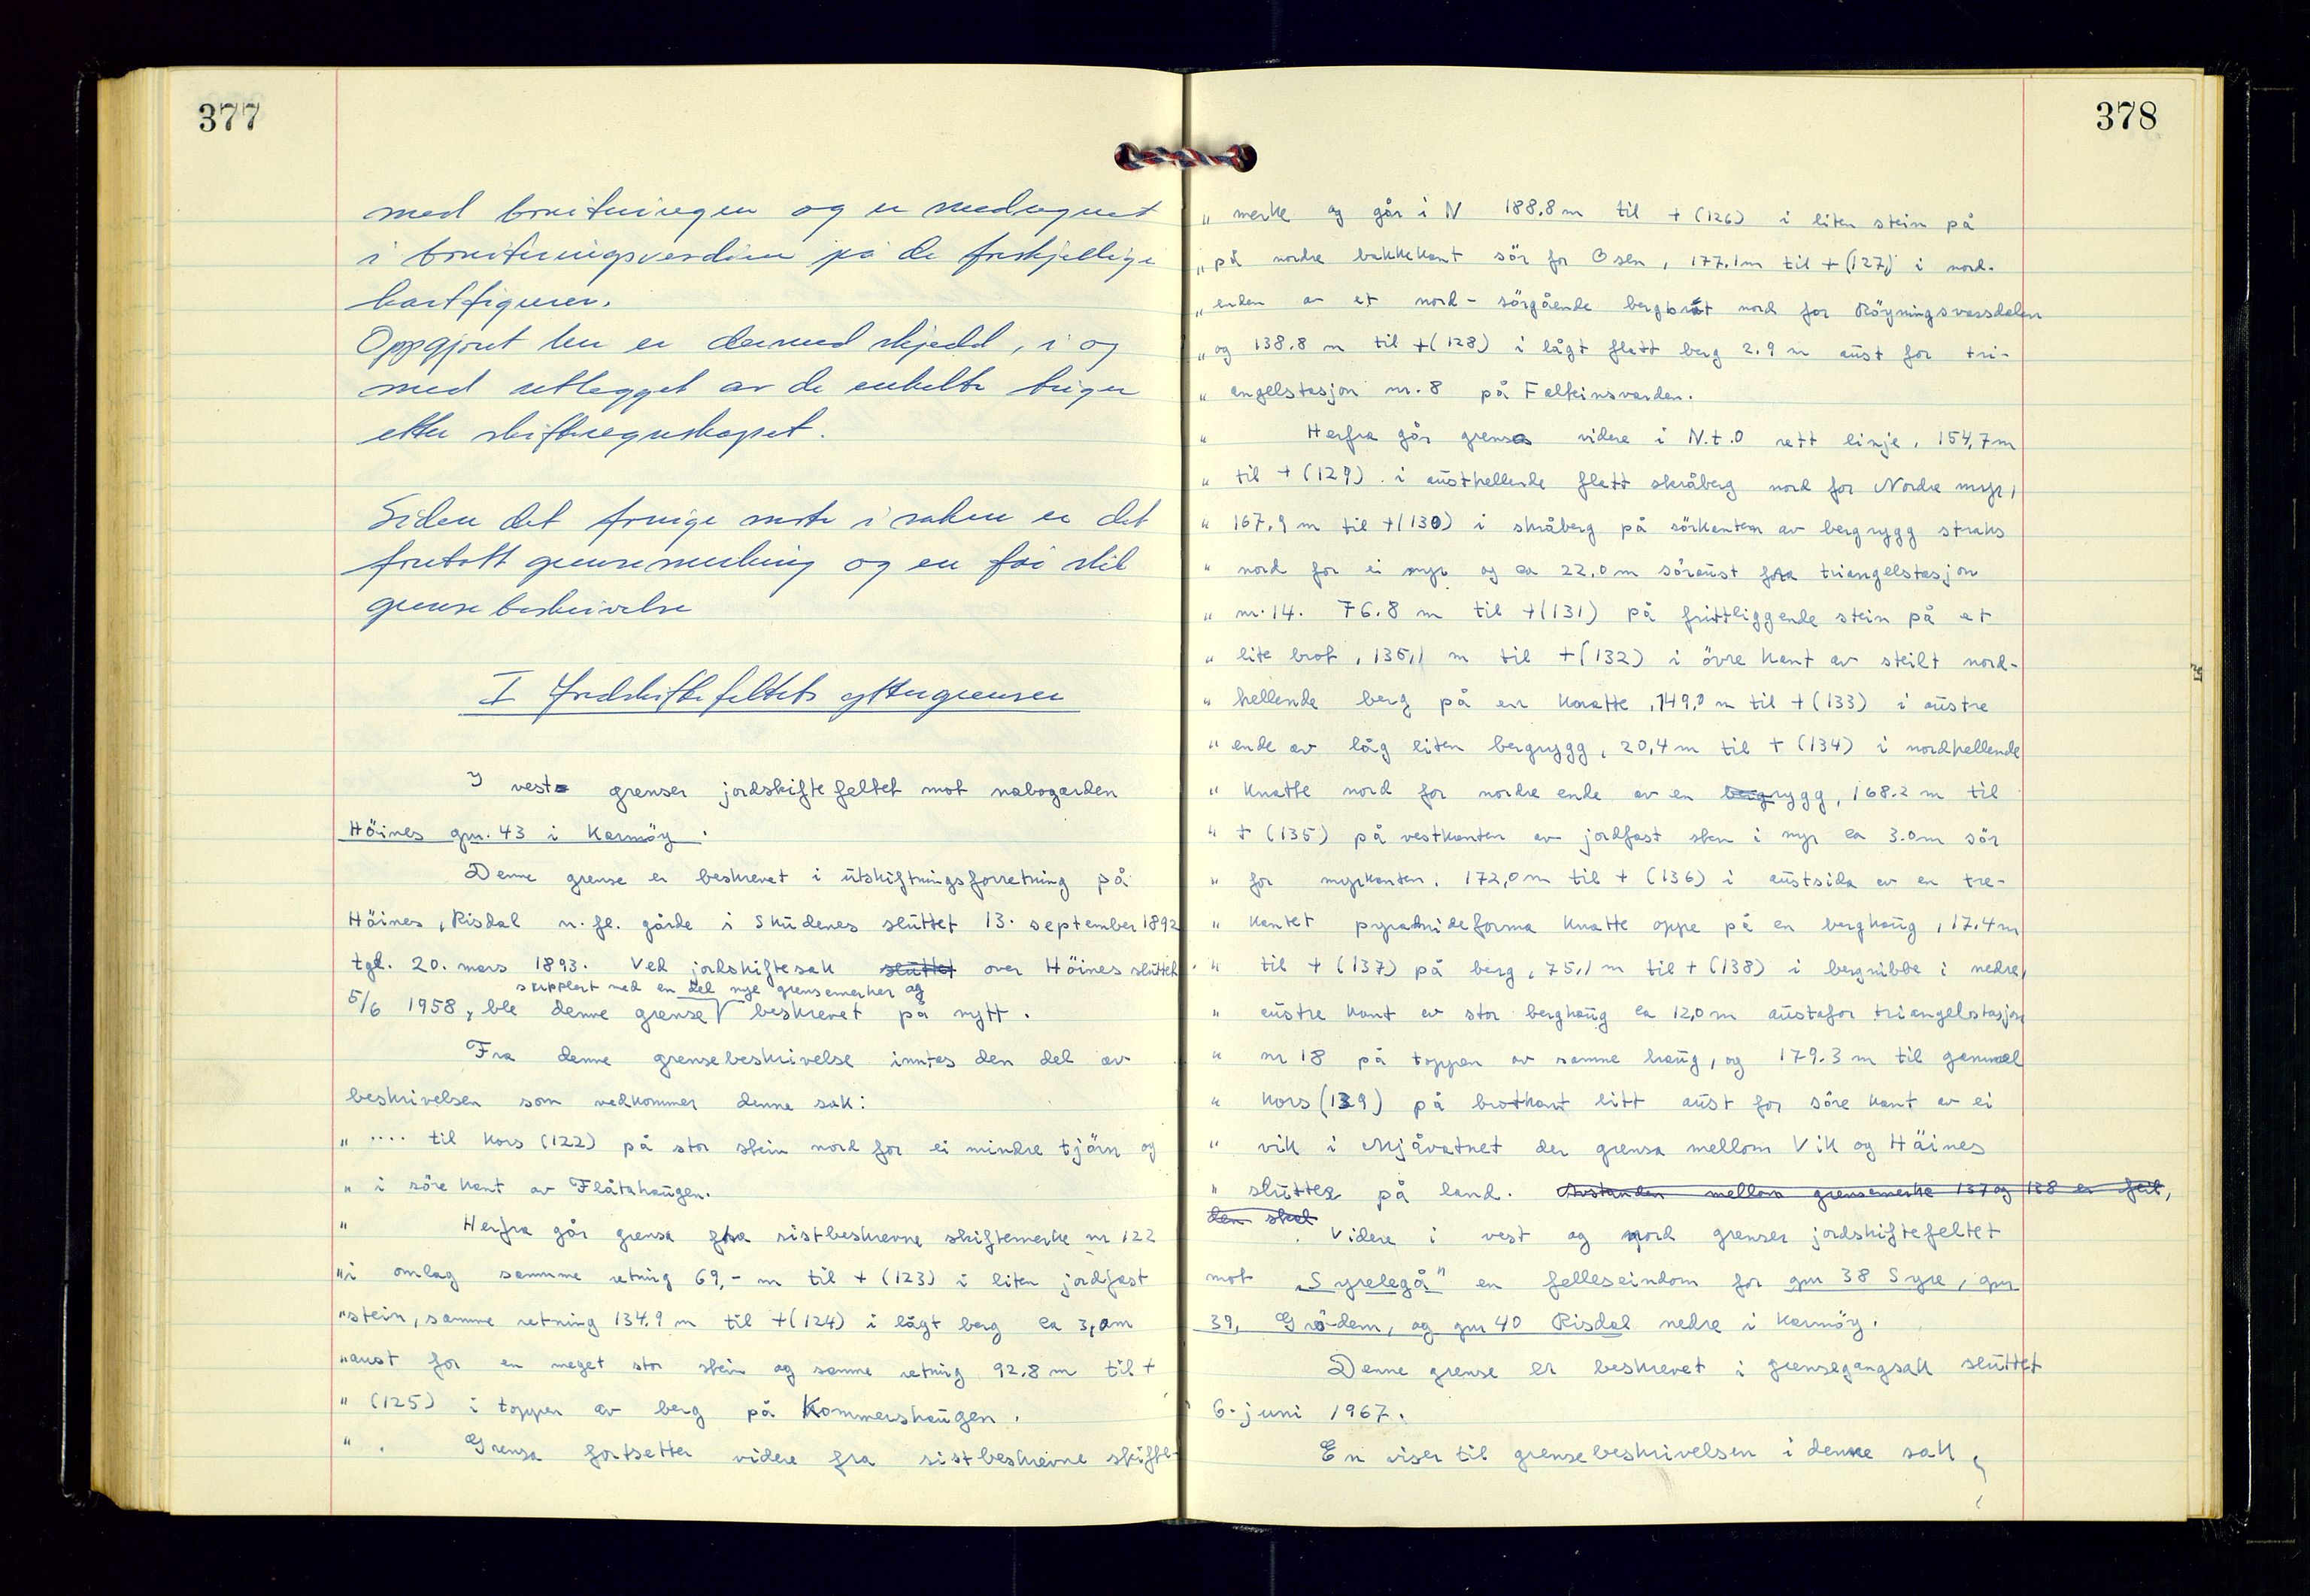 377
med boniteringen og er medregnet
i boniteringsverdien på de forskjellige
kartfigurer.
Oppgjort her er dermed skjedd, i og
med utlegget av de enkelte teiger
etter skifteregnskapet.
Siden det forrige møte i saken er det
foretatt grensemerking og en får slik
grensebeskrivelse
I Jordskiftefeltets yttergrenser
I vest grenser jordskiftefeltet mot nabogarden
Höines gnr. 43 i Karmöy.
Denne grense er beskrevet i utskiftningsforretning på
Höines, Risdal m. fl. gårde i Skudenes sluttet 13. september 1892
tgl. 20. mars 1893. Ved jordskiftesak sluttet over Höines sluttet
supplert med en del nye grensemerker og
5/6 1958, ble denne grense √ beskrevet på nytt.
Fra denne grensebeskrivelse inntas den del av
beskrivelsen som vedkommer denne sak:
" .... til kors (122) på stor stein nord for ei mindre tjörn og
" i söre kant av Flåtahaugen.
" Herfra går grensa fra sistbeskrevne skiftemerke nr 122
" i omlag samme retning 69,- m til + (123) i liten jordfast
" stein, samme retning 134.9 m til +(124) i lågt berg ca 3,0m
" aust for en meget stor stein og samme retning 92.8 m til +
" (125) i toppen av berg på Kommershaugen.
" . Grensa fortsetter videre fra sistbeskrevne skifte-
378
" merke og går i N 188.8m til + (126) i liten stein på
" på nordre bakkekant sör for Osen, 177.1m til + (127) i nord-
" enden av et nord-sörgående bergbrot nord for Röyningsvassdalen
" og 138.8 m til +(128) i lågt flatt berg 2.9 m aust for tri-
" angelstasjon nr. 8 på Falkeinsvarden.
" Herfra går grensa videre i N.t.O rett linje, 154,7m
" til + (129) i austhellende flatt skråberg nord for Nordre myr,
" 167.9 m til +(130) i skråberg på sörkanten av bergrygg straks
" nord for ei myr og ca 22.0 m söraust fra triangelstasjon
" nr. 14. 76.8 m til +(131) på frittliggende stein på et
" lite brot, 135,1 m til +(132) i övre kant av steilt nord-
" hellende berg på en knatte, 149,0 m til +(133) i austre
" ende av låg liten bergrygg, 20,4 m til + (134) i nordhellende
" knatte nord for nordre ende av en bergrygg, 168.2 m til
" + (135) på vestkanten av jordfast sten i myr ca 3.0m sör
" for myrkanten. 172,0 m til + (136) i austsida av en tre-
" kantet pyramideforma knatte oppe på en berghaug, 17.4m
" til + (137) på berg, 75,1 m til + (138) i bergnibbe i nedre,
" austre kant av stor berghaug ca 12,0 m austafor triangelstasjon
" nr 18 på toppen av samme haug, og 179.3 m til gammel
" kors (139) på brotkant litt aust for söre kant av ei
" vik i Mjåvatnet der grensa mellom Vik og Häines
" slutter på land. Avstanden mellom grensemerke 137 og 138 er feil,
den skal
Videre i vest og nord grenser jordskiftefeltet
mot „Syrelegå" en felleseindom for gnr 38 Syre, gnr
39, Grödem, og gnr 40 Risdal nedre i Karmöy.
Denne grense er beskrevet i grensegangsak sluttet
6. juni 1967.
En viser til grensebeskrivelsen i denne sak